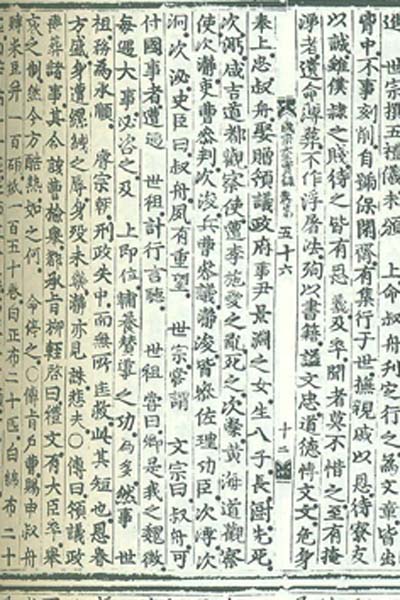 進世宗撰五禮儀未頒 上命叔舟刊定行之爲文章皆出
胷中不事刻削自號保閑齋有集行于世撫親戚以恩待寮友
以誠雖僕隸之賤待之皆有恩義及卒聞者莫不惜之至有掩
涕者遺命薄葬不作浮屠法殉以書籍謚文忠道德博文文危身
五十六 十二
奉上忠叔舟娶贈領議政府事尹景淵之女生八子長澍先死
次㴐咸吉道都觀察使遭李施愛之亂死之次澯黃海道觀察
使次瀞吏曹叅判次浚兵曹叅議瀞浚皆叅佐理功臣次溥次
泂次泌史臣曰叔舟夙有重望 世宗嘗謂 文宗曰叔舟可
付國事者遭遇 世祖計行言聽 世祖嘗曰卿是我之魏徵
每遇大事必咨之及 上即位輔養贊導之功爲多然事 世
祖務爲承順 睿宗朝刑政失中而無所匡救此其短也恩眷
方盛身遭縲絏之辱身殁未幾瀞亦見誅悲夫○傳曰領議政
喪葬諸事其令該曹檢擧都承旨柳輊啓曰禮文有大臣卒擧
哀之制然今方酷熱如之何 命停之○傳旨戶曹賜申叔舟
賻米豆幷一百碩紙一百五十卷白正布二十匹白綿布二十